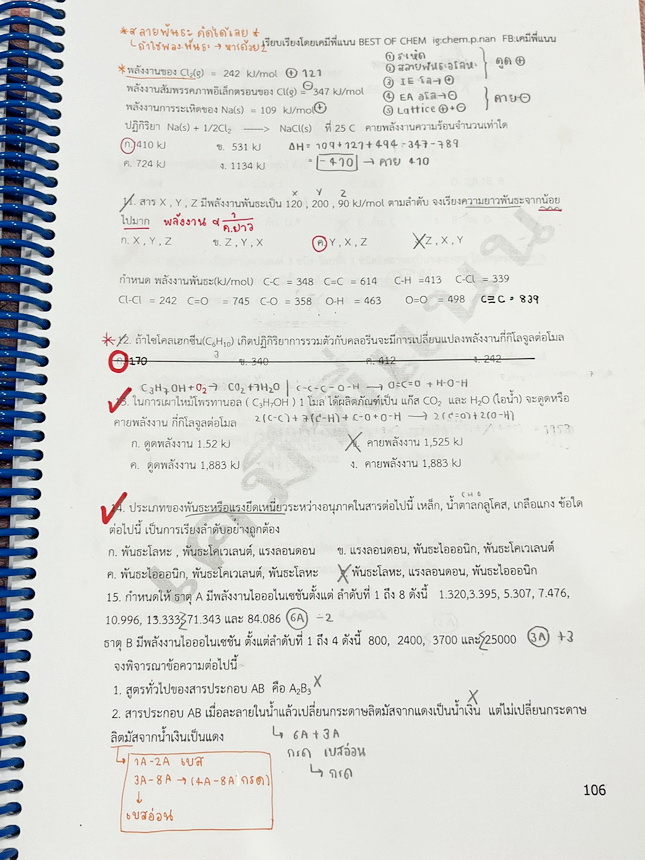 *สลายพันธะ คิดได้เลย*
เรียบเรียงโดยเคมีพี่แนน BEST OF CHEM ig:chem.p.nan FB:เคมีพี่แนน
*พลังงานของ Cl₂(g) = 242 kJ/mol ⊕ 121
① ระเหิด
② สลายพันธะอโลหะ
③ IE โล→⊕
④ EA อโล→⊖
⑤ Lattice ⊕→⊖
ดูด ⊕
คาย ⊖
พลังงานสัมพรรคภาพอิเล็กตรอนของ Cl(g) = ⊖347 kJ/mol
พลังงานการระเหิดของ Na(s) = 109 kJ/mol ⊕
ปฏิกิริยา Na(s) + 1/2Cl₂ ⟶ NaCl(s) ที่ 25 C คายพลังงานความร้อนจำนวนเท่าใด
ก. 410 kJ ข. 531 kJ ΔH = 109+121+494-347-789
ค. 724 kJ ง. 1134 kJ = -410 → คาย 410
X Y Z
11. สาร X , Y , Z มีพลังงานพันธะเป็น 120 , 200 , 90 kJ/mol ตามลำดับ จงเรียงความยาวพันธะจากน้อย
ไปมาก พลังงาน ∝ 1/ค.ยาว
ก. X , Y , Z ข. Z , Y , X ค. Y , X , Z ง. Z , X , Y
กำหนด พลังงานพันธะ(kJ/mol) C-C = 348 C=C = 614 C-H =413 C-Cl = 339
Cl-Cl = 242 C=O = 745 C-O = 358 O-H = 463 O=O = 498 C≡C = 839
*12. ถ้าไซโคลเฮกซีน(C₆H₁₀) เกิดปฏิกิริยาการรวมตัวกับคลอรีนจะมีการเปลี่ยนแปลงพลังงานกี่กิโลจูลต่อโมล
ก. 170 ข. 340 ค. 412 ง. 242
C₃H₇OH + O₂ → CO₂ + H₂O | C-C-C-O-H → O=C=O + H-O-H
13. ในการเผาไหม้โพรทานอล ( C₃H₇OH ) 1 โมล ได้ผลิตภัณฑ์เป็น แก๊ส CO₂ และ H₂O (ไอน้ำ) จะดูดหรือ
คายพลังงาน กี่กิโลจูลต่อโมล 2(C-C)+7(C-H)+C-O+O-H → 2(C=O)+2(O-H)
ก. ดูดพลังงาน 1.52 kJ ข. คายพลังงาน 1,525 kJ
ค. ดูดพลังงาน 1,883 kJ ง. คายพลังงาน 1,883 kJ
CHO
14. ประเภทของพันธะหรือแรงยึดเหนี่ยวระหว่างอนุภาคในสารต่อไปนี้ เหล็ก, น้ำตาลกลูโคส, เกลือแกง ข้อใด
ต่อไปนี้ เป็นการเรียงลำดับอย่างถูกต้อง
ก. พันธะโลหะ , พันธะโคเวเลนต์, แรงลอนดอน ข. แรงลอนดอน, พันธะไอออนิก, พันธะโคเวเลนต์
ค. พันธะไอออนิก, พันธะโคเวเลนต์, พันธะโลหะ ง. พันธะโลหะ, แรงลอนดอน, พันธะไอออนิก
15. กำหนดให้ ธาตุ A มีพลังงานไอออไนเซชันตั้งแต่ ลำดับที่ 1 ถึง 8 ดังนี้ 1.320,3.395, 5.307, 7.476,
10.996, 13.333,71.343 และ 84.086 6A -2
ธาตุ B มีพลังงานไอออไนเซชัน ตั้งแต่ลำดับที่ 1 ถึง 4 ดังนี้ 800, 2400, 3700 และ 25000 3A +3
จงพิจารณาข้อความต่อไปนี้
1. สูตรทั่วไปของสารประกอบ AB คือ A₂B₃ X
2. สารประกอบ AB เมื่อละลายในน้ำแล้วเปลี่ยนกระดาษลิตมัสจากแดงเป็นน้ำเงิน แต่ไม่เปลี่ยนกระดาษ X
ลิตมัสจากน้ำเงินเป็นแดง ↳ 6A + 3A
กรด เบสอ่อน
↳ กรด
↳ 1A-2A เบส
3A-8A → (4A-8A กรด)
↓
เบสอ่อน
106